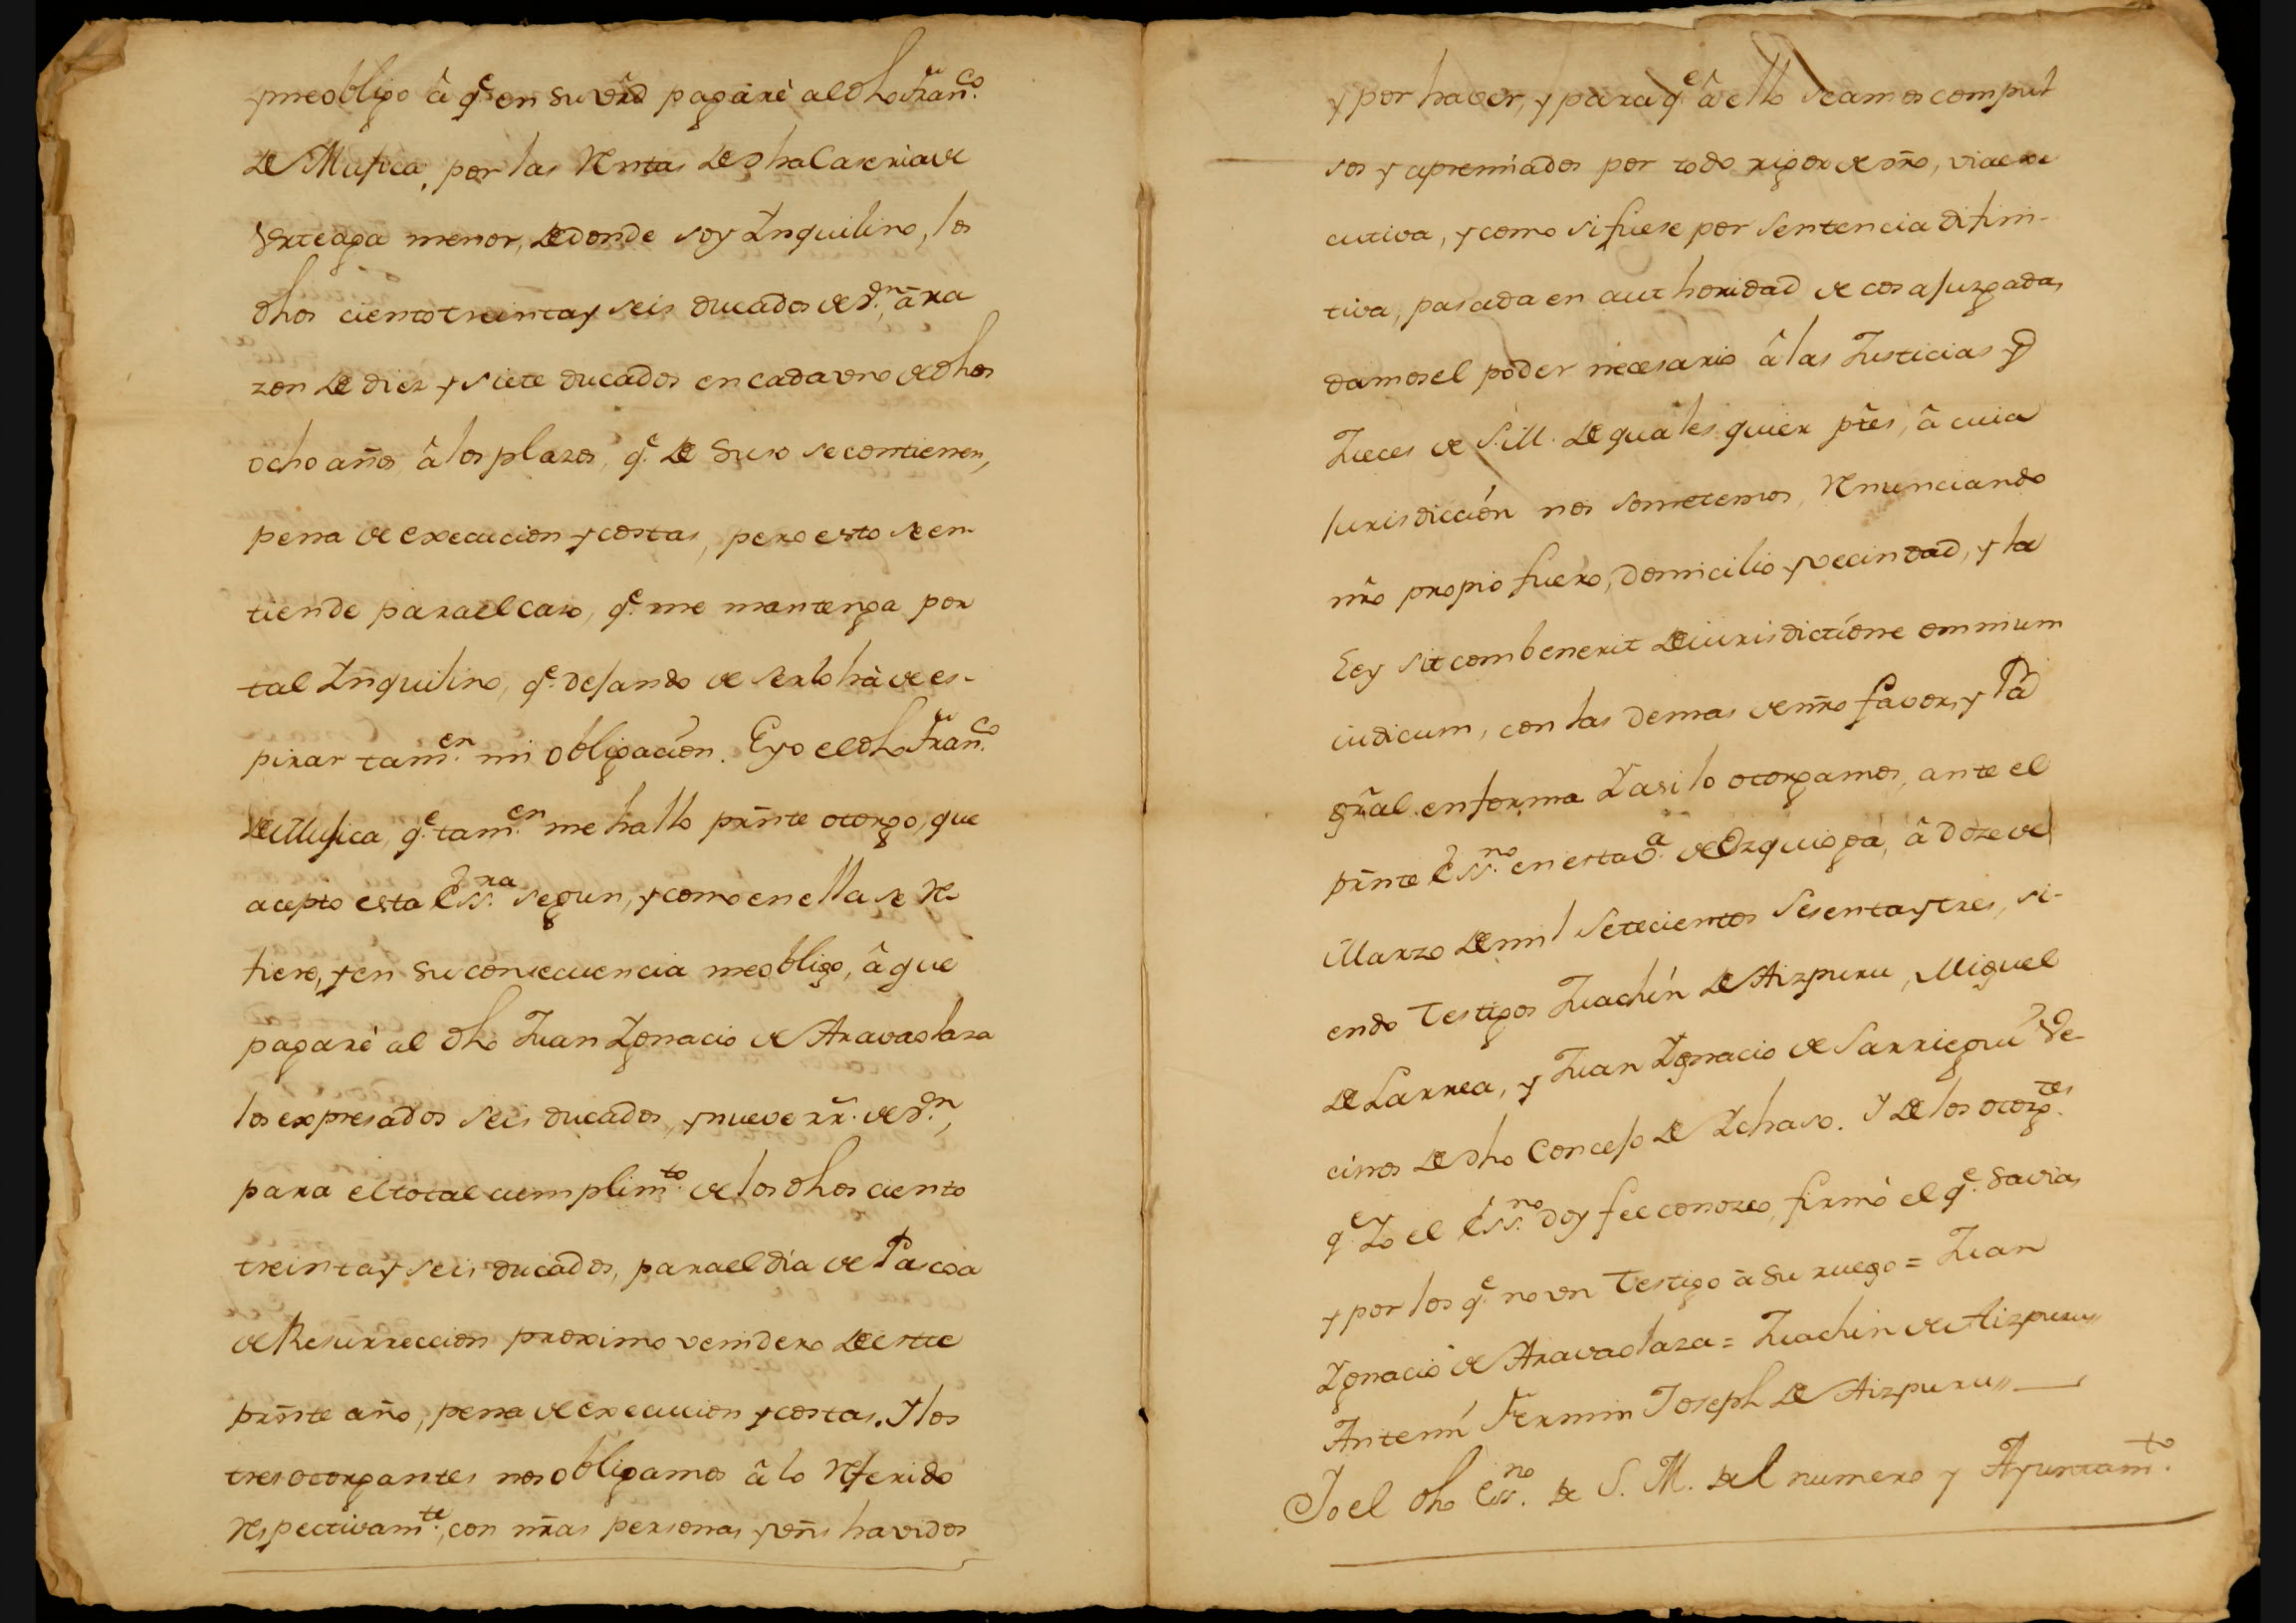 y me obligo â q.e en su vrd pagarè al dho Fran.co
de Mujica, por las rentas de dha Caseria de
Vrteaga menor, de donde soy Inquilino, los
dhos ciento treinta y seis ducados de v.n, â ra
zon de diez y siete ducados en cada vno de dhos
ocho años â los plazos, q.e de suso se contienen,
pena de execucion y costas, pero esto se en-
tiende para el caso, q.e me mantenga por
tal Inquilino, q.e dejando de serlo hà de es-
pirar tam.en mi obligacion. E yo el dho Fran.co
de Mujica, q.e tam.en me hallo prñte otorgo, que
acepto esta Ess.ra segun, y como en ella se re-
fiere, y en su consecuencia me obligo, â que
pagarè al dho Juan Ignacio de Aravaolaza
los expresados seis ducados, y nueve rr.s de v.n,
para el total cumplim.to de los dhos ciento
treinta y seis ducados, para el dia de Pascoa
de Resurreccion proximo venidero de este
prñte año, pena de execucion y costas. Y los
tres otorgantes nos obligamos â lo referido
respectivam.te, con nr̃as personas y vñs havidos
y por haver, y para q.e â ello seamos compul
sos y apremiados por todo rigor de dr̃o, via exe
cutiva, y como si fuese por sentencia difini-
tiva, pasada en authoridad de cosa juzgada,
damos el poder necesario â las Justicias y
Jueces de S. M. de quales quier ptẽs, â cuia
jurisdiccion nos sometemos, renunciando
nr̃o propio fuero, domicilio y vecindad, y la
Ley sit combenerit de iurisdictione omnium
iudicum, con las demas de nr̃o favor, y la
gr̃al en forma Y asi lo otorgamos, ante el
prñte Ess.no en esta v.a de Ezquioga, â doze de
Marzo de mil setecientos sesenta y tres, si-
endo testigos Juachin de Aizpuru, Miguel
de Larrea, y Juan Ignacio de Sarriegui Ve-
cinos de dho Concejo de Ichaso. Y de los otorg.tes
q.e Yo el Ess.no doy fee conozco, firmò el q.e savia,
y por los q.e no vn testigo â su ruego = Juan
Ignacio de Aravaolaza = Juachin de Aizpuru
Antemi Fermin Joseph de Aizpuru
Yo el dho Ess.no de S. M. del numero y Ayuntam.to